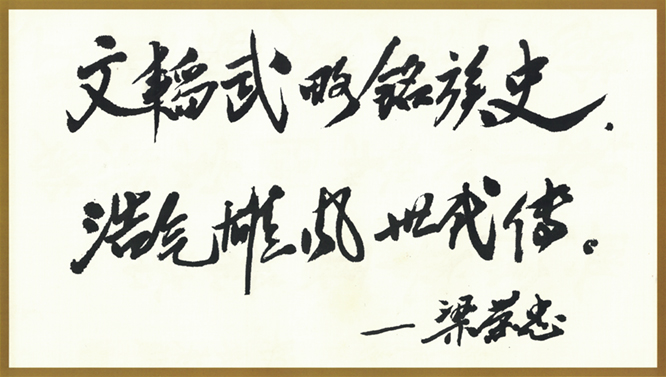 文韬武略铭族史.
浩气雄风世代传。
—梁荣忠